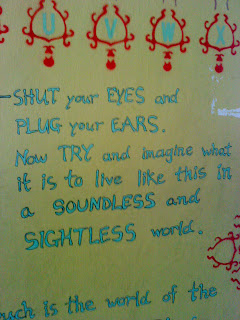 U V W X
-SHUT your EYES and
PLUG your EARS.
Now TRY and imagine what
it is to live like this in
a SOUNDLESS and
SIGHTLESS world.
uch is the world of the